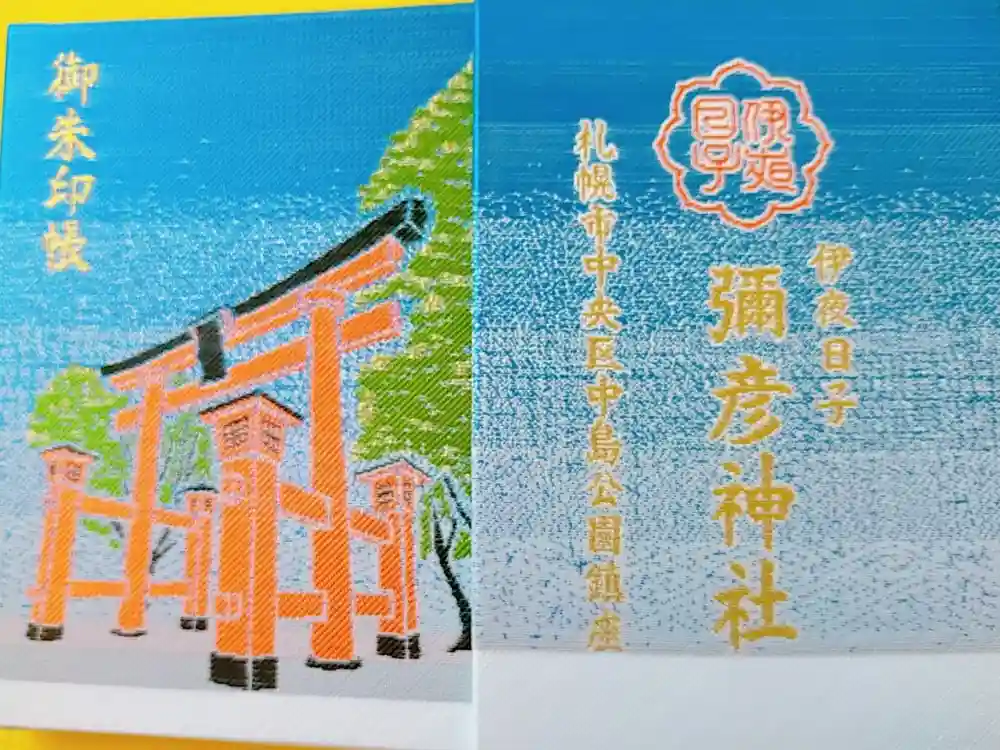 御朱印帳
伊夜日子
伊夜日子
彌彦神社
札幌市中央区中島公園鎮座